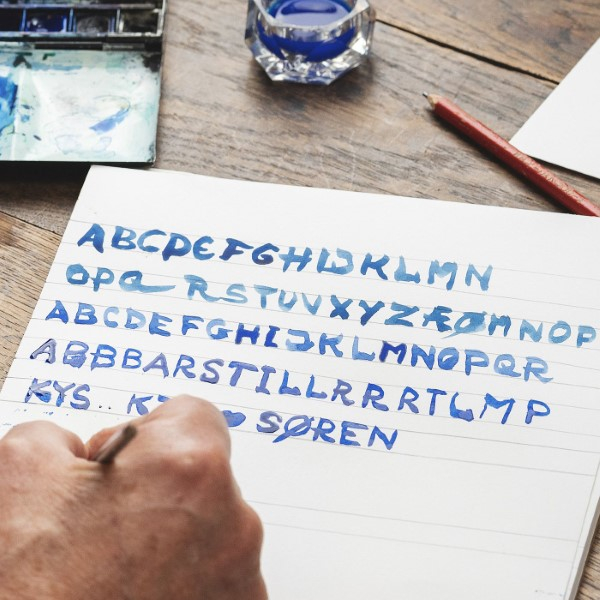 ABCDEFGHIJKLMN
OPQ RSTUVXYZÆØMNOP
ABCDEFGHIJKLMNOPQR
ABBBARSTILLRRRTLMP
KYS.. ♥ SØREN